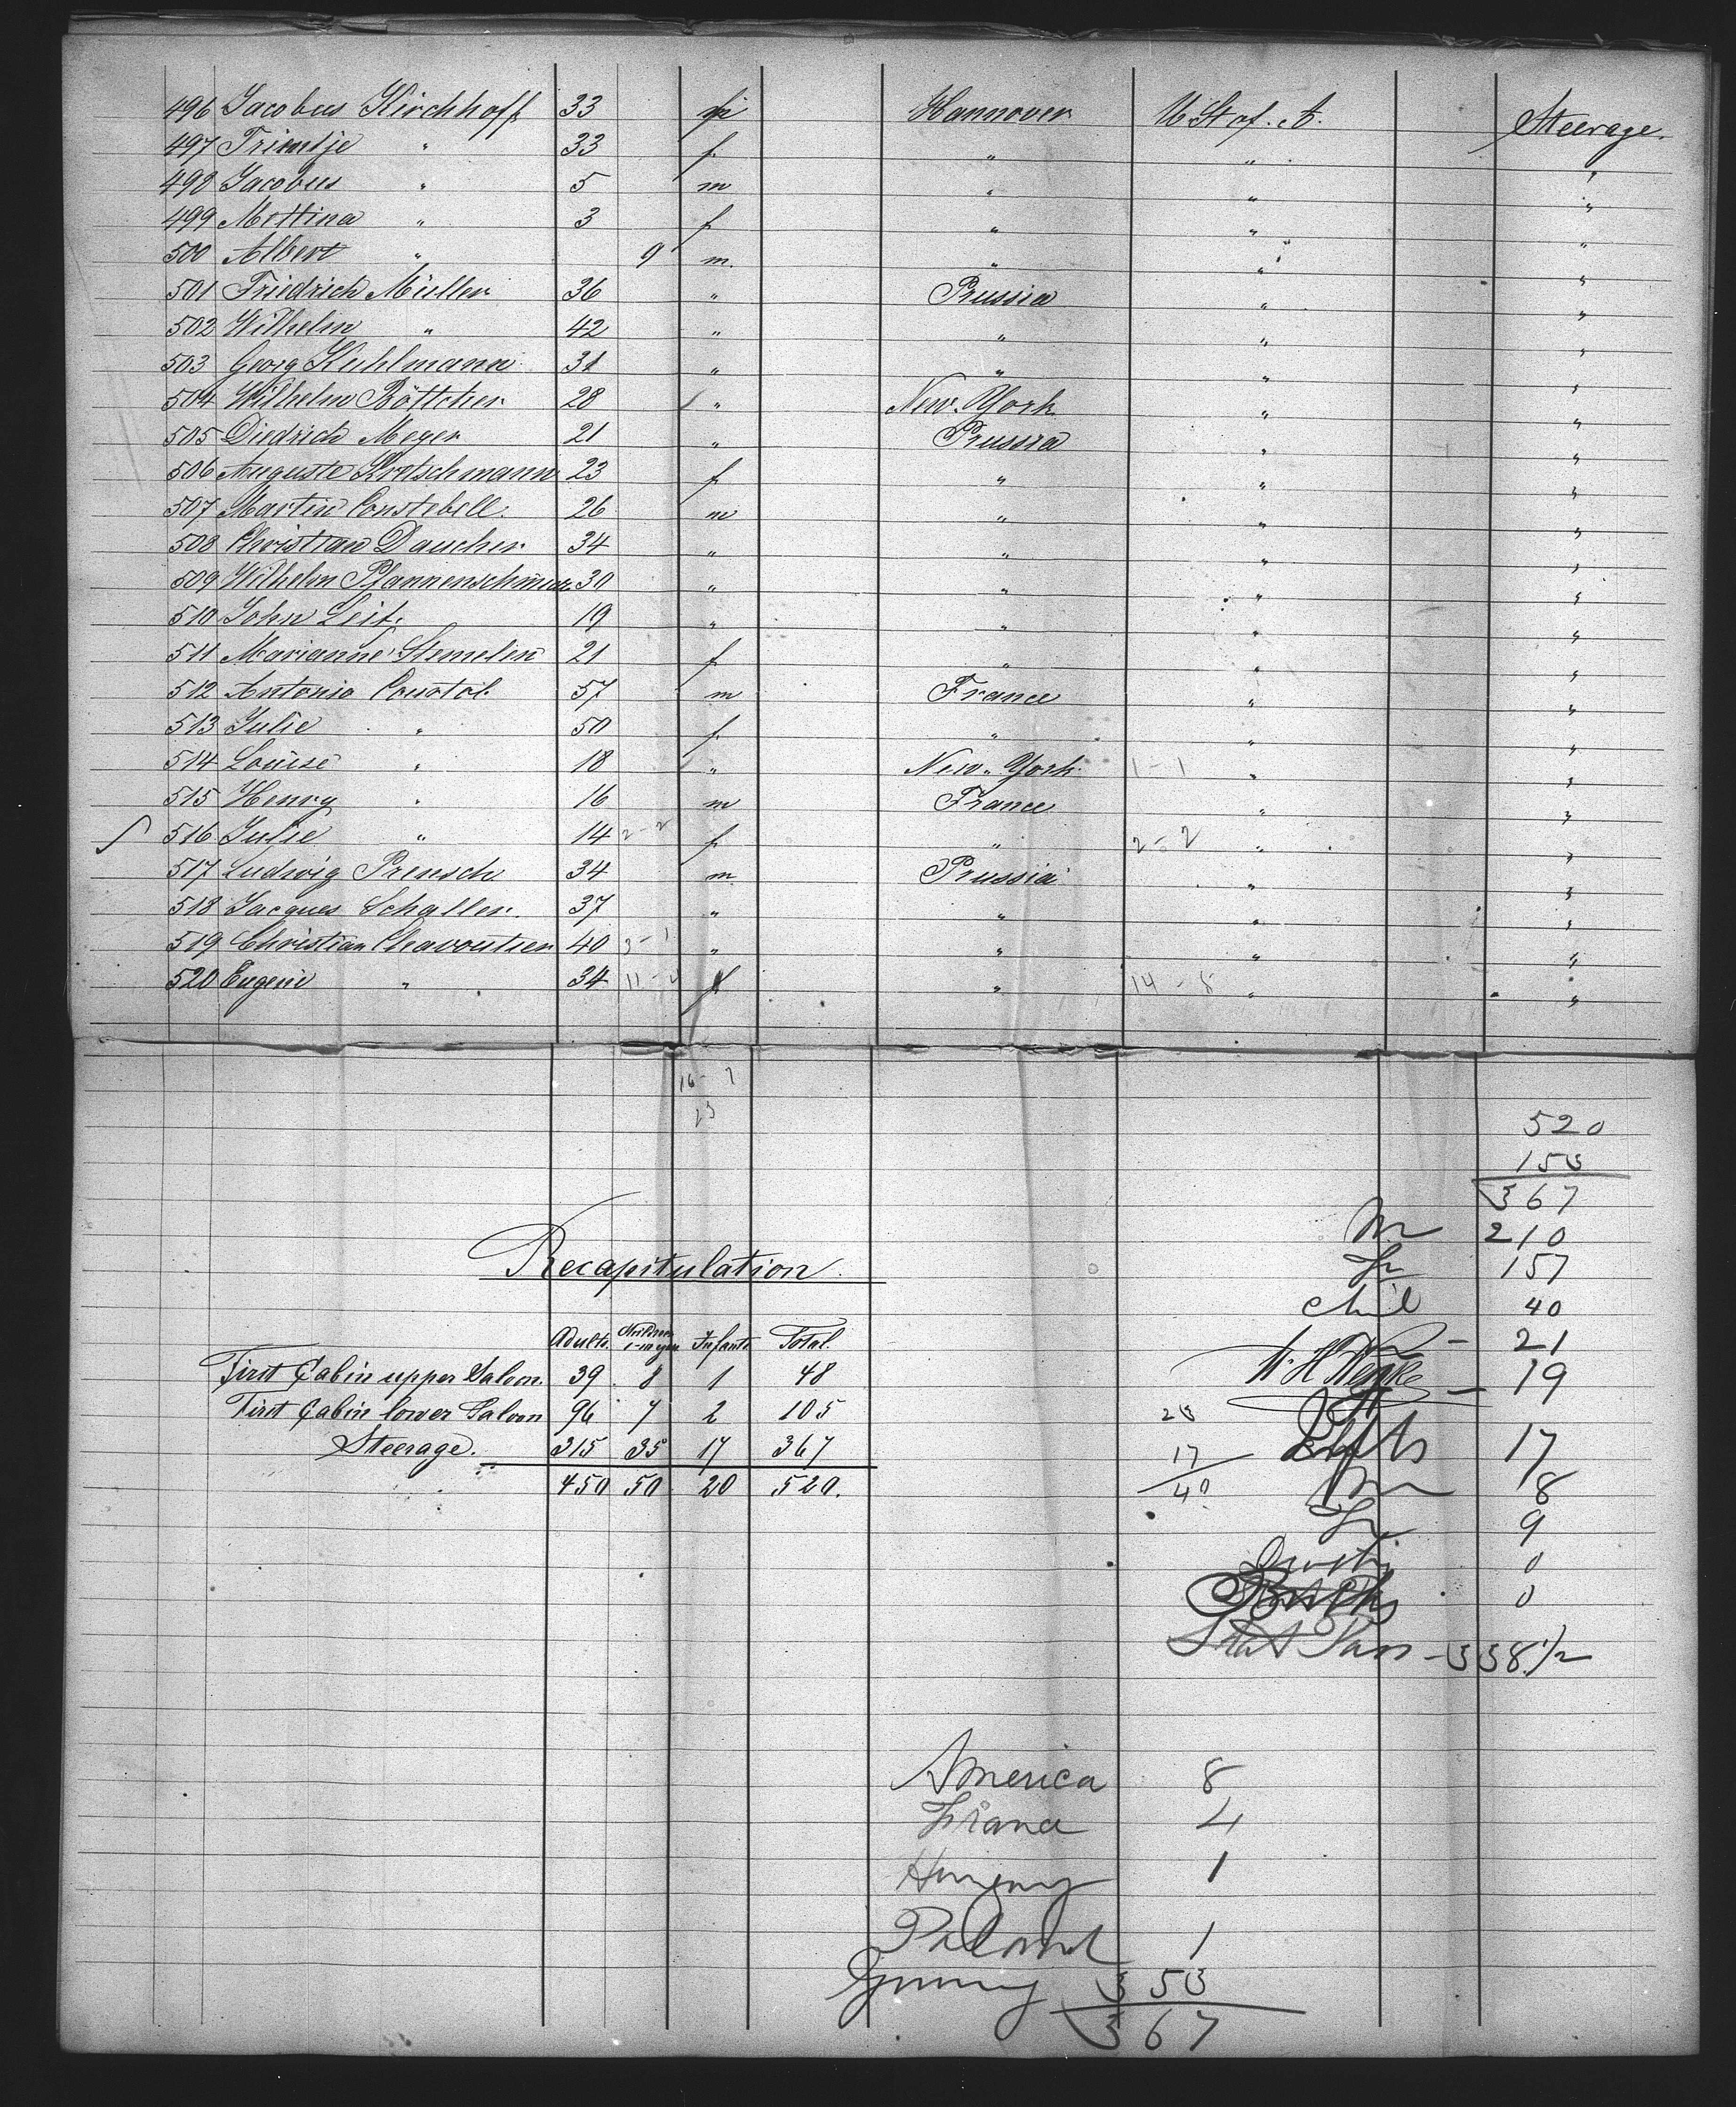 496 Jacobus Kirchhoff 33 m Hannover U St of. A. Steerage.
497 Trientje " 33 f. " " "
498 Jacobus " 5 m " " "
499 Mettina " 3 f " " "
500 Albert " 9 m. " " "
501 Friedrich Müller 36 " Prussia " "
502 Wilhelm " 42 " " " "
503 Georg Kuhlmann 31 " " " "
504 Wilhelm Böttcher 28 " New. York " "
505 Diedrich Meyer 21 " Prussia " "
506 Auguste Kretschmann 23 f " " "
507 Martin Constebell. 26 m " " "
508 Christian Daucher 34 " " " "
509 Wilhelm Pfannenschmidt 30 " " " "
510 John Leit. 19 " " " "
511 Marianne Stemelin 21 f " " "
512 Antonio Constol. 57 m France " "
513 Julie " 50 f. " " "
514 Louise " 18 " New. York. 1-1 " "
515 Henry " 16 m France " "
516 Julie " 14 2-2 f " 2-2 " "
517 Ludwig Prensch 34 m Prussia " "
518 Jacques Schaller. 37 " " " "
519 Christian Cleavoutier 40 3-1 " " " "
520 Eugenie " 34 f " 14-8 " "
16-7
23
520
153
367
m 210
f 157
chil 40
21
19
Recapitulation.
Adults. Children Infants Total.
First Cabin upper Saloon. 39 8 1 48
First Cabin lower Saloon 96 7 2 105
Steerage. 315 35 17 367
450 50 20 520.
23
17
40
Infts 17
m 8
f 9
0
0
Stat Pass - 338 1/2
America 8
France 4
Hungary 1
Poland 1
Germany 353
367